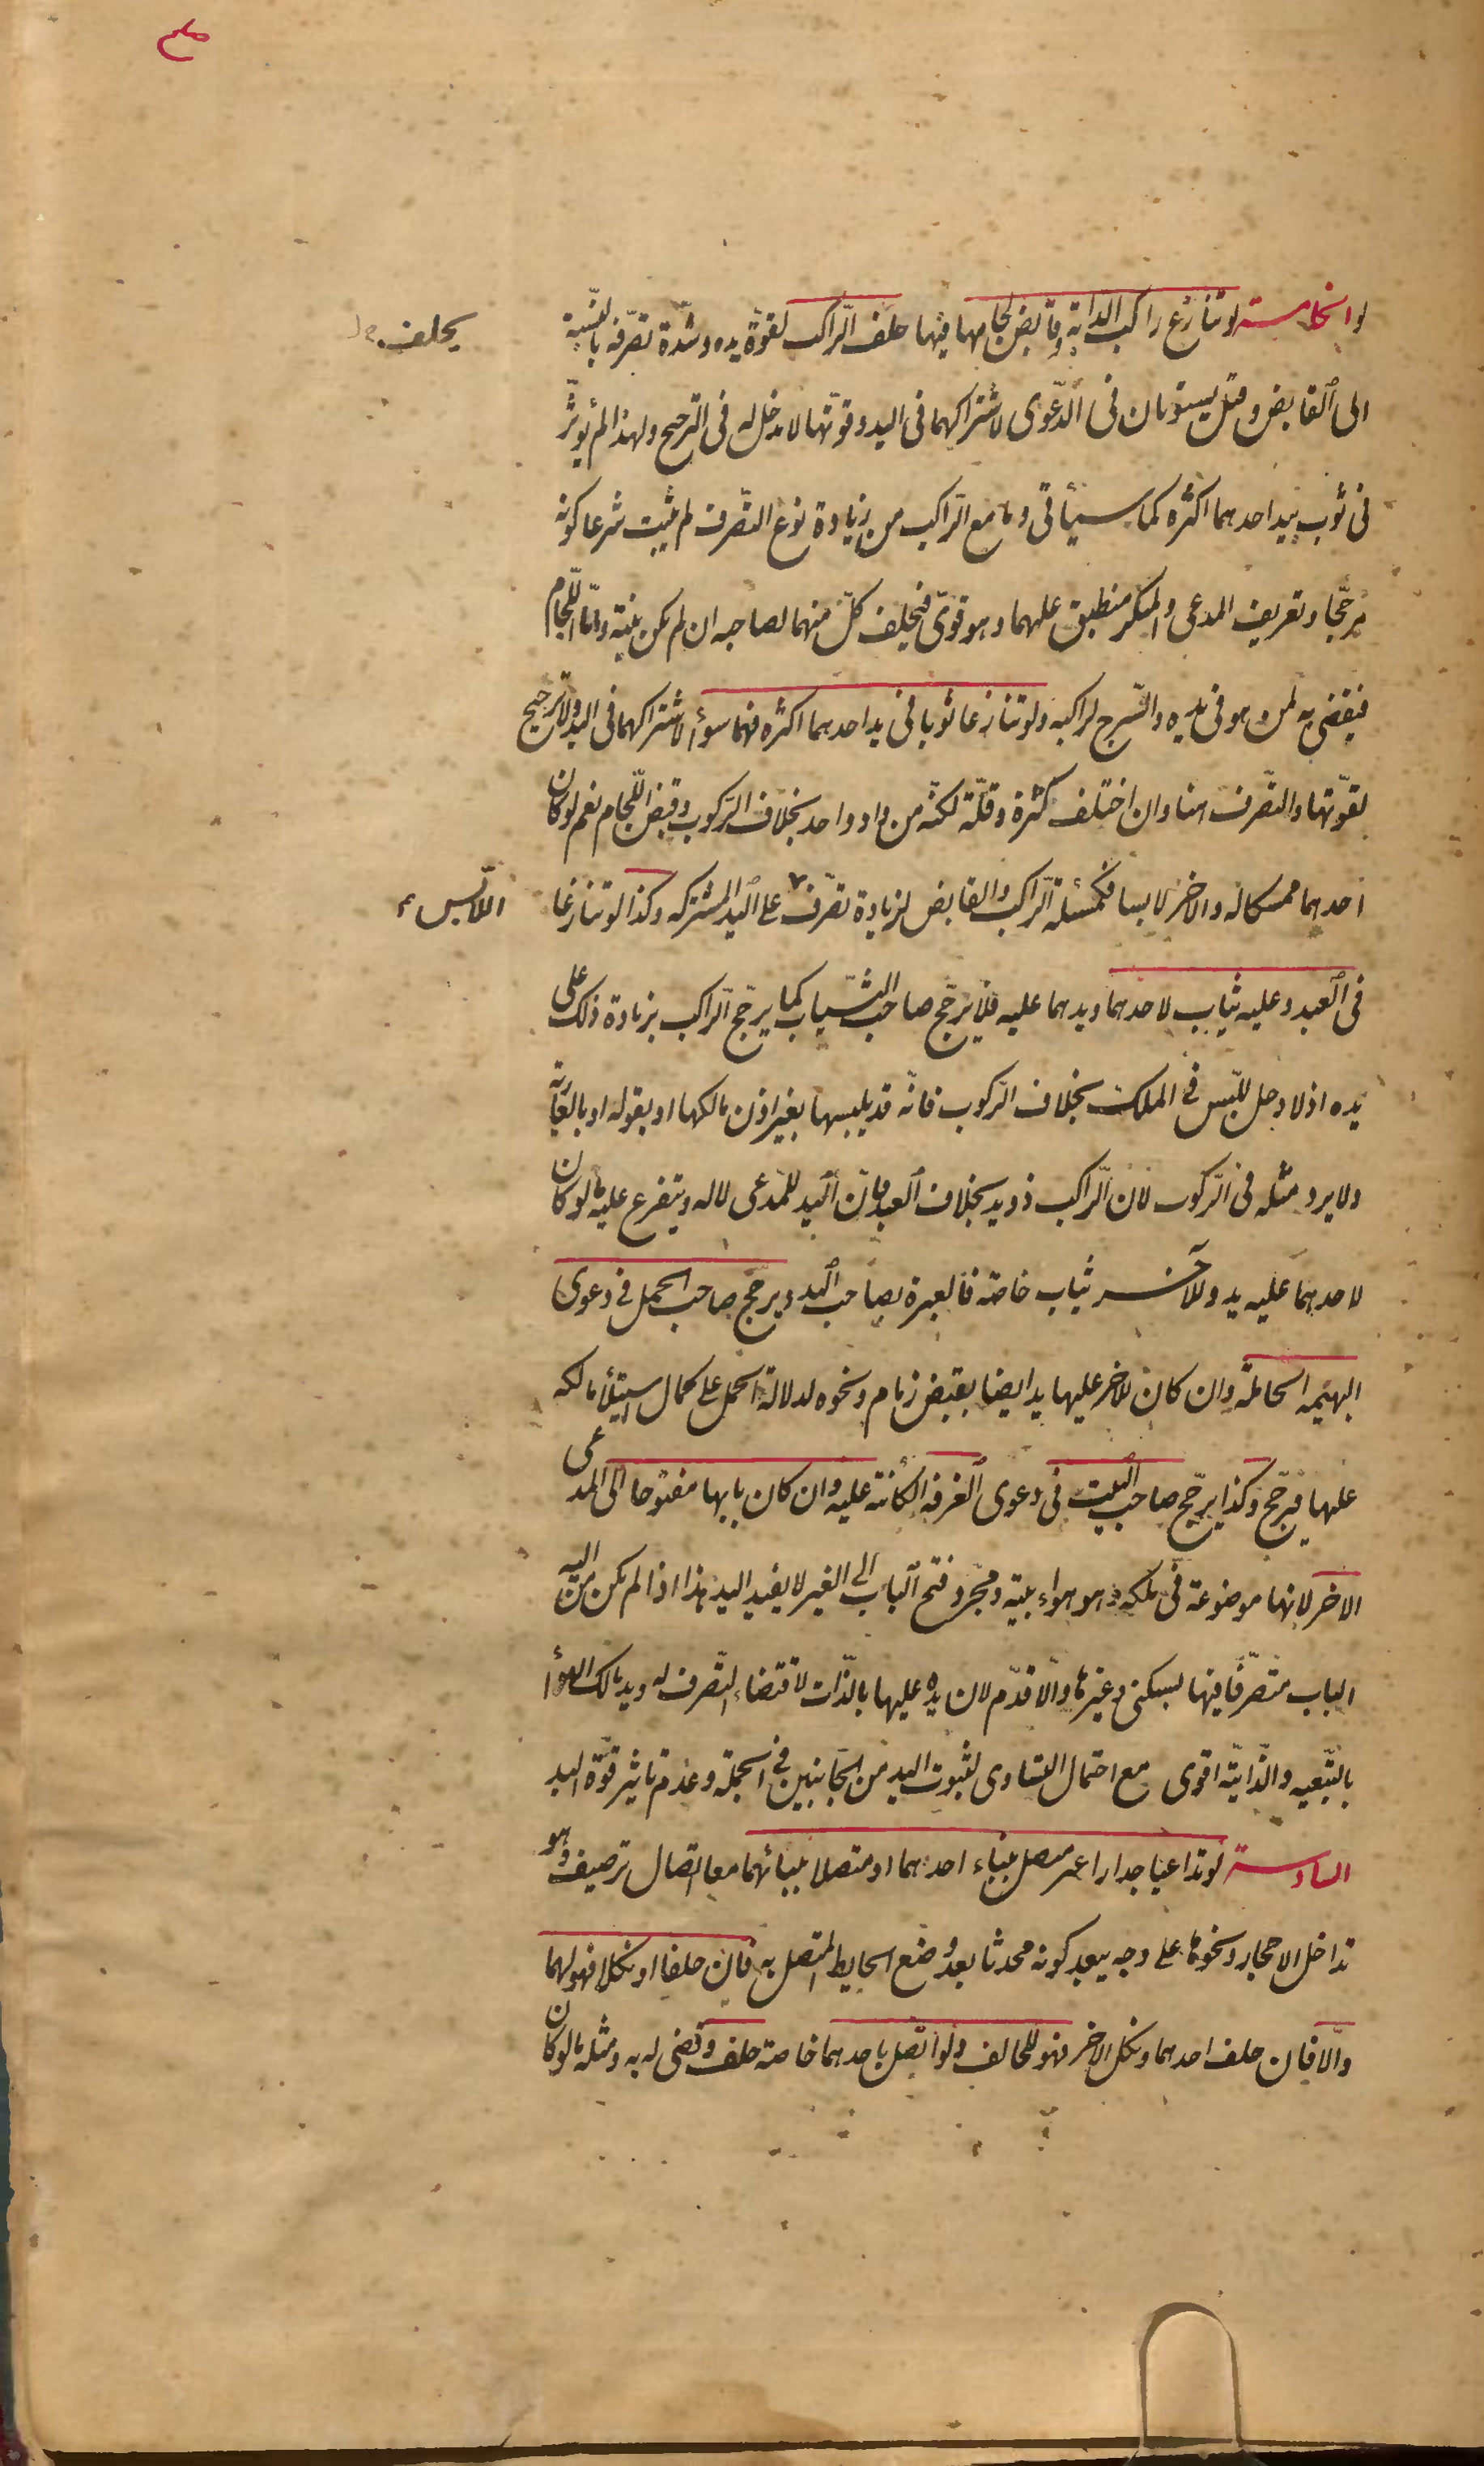 والخامسة لو تنازع راكب الدابة وقابض لجامها فيها حلف الراكب لقوة يده وشدة تصرفه بالنسبة
يحلف
الى القابض وقيل يستويان فى الدعوى لاشتراكهما فى اليد وقوتها لا مدخل له فى الترجيح ولهذا لم يؤثر
فى ثوب بيد احدهما اكثره كما سيأتى وما مع الراكب من زيادة نوع التصرف لم يثبت شرعا كونه
مرجحا وتعريف المدعى والمنكر منطبق عليهما وهو قوى فيحلف كل منهما لصاحبه ان لم يكن بينة واما اللجام
فيقضى به لمن هو فى يده والسرج لراكبه ولو تنازعا ثوبا فى يد احدهما اكثره فهما سواء لاشتراكهما فى اليد ولا ترجيح
لقوتها والتصرف هنا وان اختلف كثرة وقلة لكنه من واد واحد بخلاف الركوب وقبض اللجام نعم لو كان
احدهما ممسكا له والاخر لابسا فكمسئلة الراكب والقابض لزيادة تصرف على اليد المشتركه وكذا لو تنازعا
اللابس
فى العبد وعليه ثياب لاحدهما ويدهما عليه فلا يرجح صاحب الثياب كما يرجح الراكب بزيادة ذلك على
يده اذ لا دخل للبس فى الملك بخلاف الركوب فانه قد يلبسها بغير اذن مالكها او بقوله او بالعارية
ولا يرد مثله فى الركوب لان الراكب ذو يد بخلاف العبد فان اليد للمدعى لا له ويتفرع عليه ما لو كان
لاحدهما عليه يد وللآخر ثياب خاصة فالعبرة بصاحب اليد ويرجح صاحب الحمل فى دعوى
البهيمه الحاملة وان كان للاخر عليها يد ايضا بقبض زمام ونحوه لدلالة الحمل على كمال استيلاء مالكه
عليها فيرجح وكذا يرجح صاحب البيت فى دعوى الغرفه الكائنة عليه وان كان بابها مفتوحا الى المدعى
الاخر لانها موضوعة فى ملكه وهو هواء بيته ومجرد فتح الباب الى الغير لا يفيد اليد هذا اذا لم يكن من اليه
الباب متصرفا فيها بسكنى وغيرها والا قدم لان يده عليها بالذات لاقتضاء التصرف له ويد مالك الهواء
بالتبعيه والذاتية اقوى مع احتمال التساوى لثبوت اليد من الجانبين فى الجملة وعدم تاثير قوة اليد
السادسة لو تداعيا جدارا غير متصل ببناء احدهما او متصلا ببنائهما معا اتصال ترصيف وهو
تداخل الاحجار ونحوها على وجه يبعد كونه محدثا بعد وضع الحايط المتصل به فان حلفا او نكلا فهو لهما
والا فان حلف احدهما ونكل الاخر فهو للحالف ولو اتصل باحدهما خاصة حلف وقضى له به ومثله ما لو كان